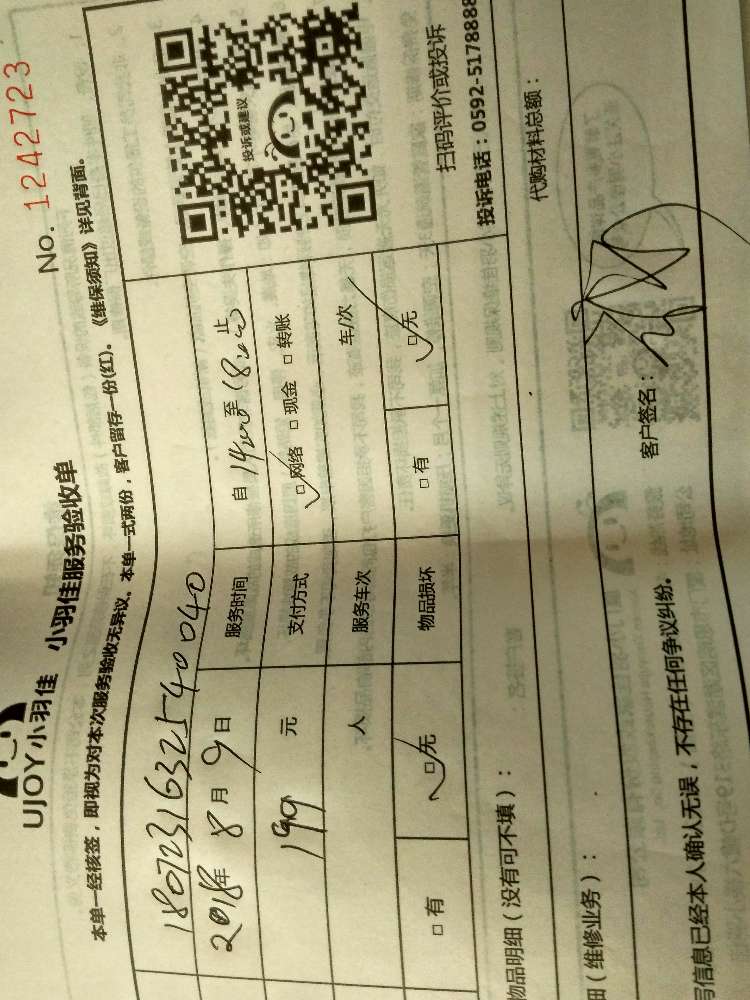 No. 1242723
UJOY小羽佳 小羽佳服务验收单
本单一经核签，即视为对本次服务验收无异议。本单一式两份，客户留存一份(红)。《维保须知》详见背面。
1807231632540040
2018年 8月 9日 服务时间 自 14:00 至 18:00 止
199 元 支付方式 □网络 □现金 □转账
人 服务车次 车/次
□有 □无 物品损坏 □有 □无
投诉或建议
扫码评价或投诉
投诉电话：0592-5178888
物品明细（没有可不填）：
代购材料总额：
细（维修业务）：
写信息已经本人确认无误，不存在任何争议纠纷。 客户签名：